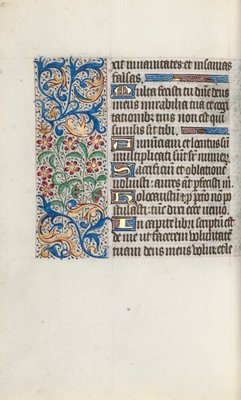 xit in vanitates et insanias
falsas.
Multa fecisti tu dn̄e deus
meus mirabilia tua et cogi
tationib; tuis non est qui
similis sit tibi.
Annūciaui et locutus sum
multiplicati sūt sr̄ numeꝝ.
Sacrificiū et oblationē
noluisti: aures aūt
Holocaustū et pro no po
stulasti: tūc dixi ecce uenio.
In capite libri scriptū est
de me ut facerem voluntatē
tuam deus meus volui et le